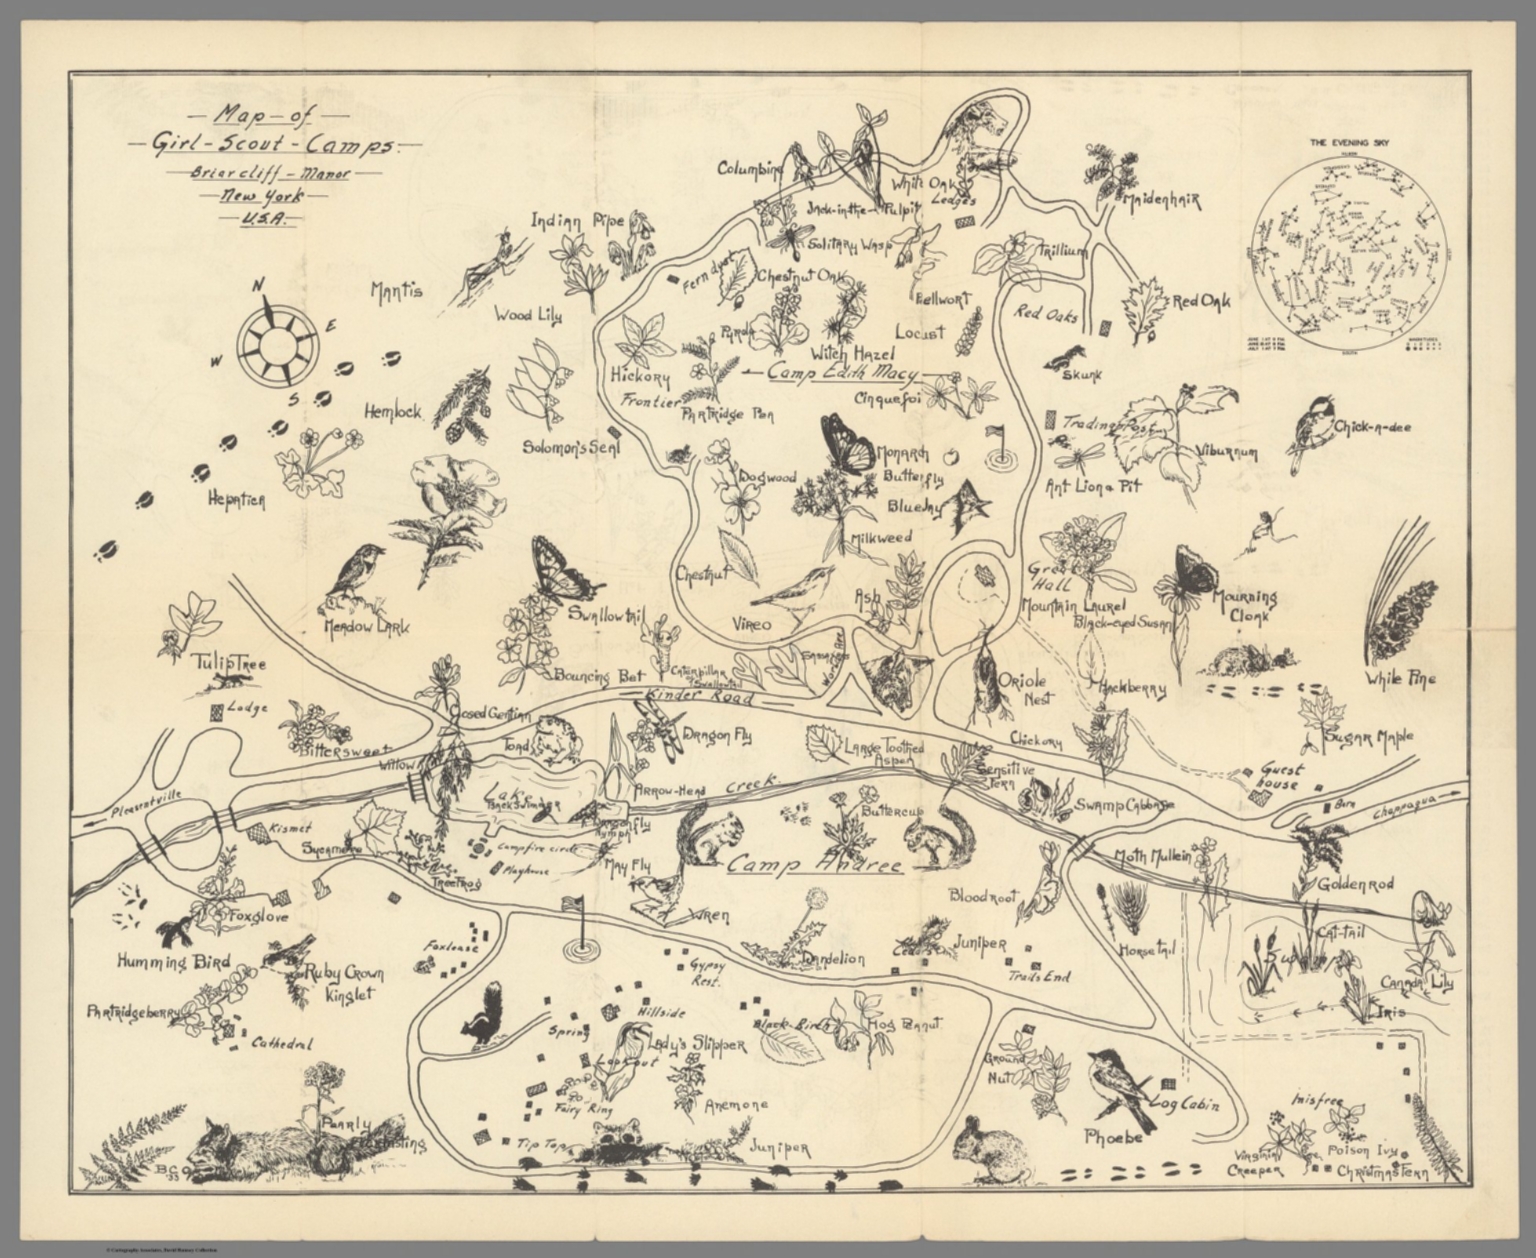 Map of
Girl-Scout-Camps.
Briarcliff-Manor
New York
U.S.A.
THE EVENING SKY
SOUTH
N
E
W
S
Columbine
White Oak
Ledges
Maidenhair
Jack-in-the-Pulpit
Indian Pipe
Solitary Wasp
Trillium
Mantis
Fern dyst
Chestnut Oak
Wood Lily
Bellwort
Red Oaks
Red Oak
Locust
Witch Hazel
Skunk
Hickory
Camp Edith Macy
Frontier
Cinquefoi
Partridge Pea
Hemlock
Trading Post
Chick-a-dee
Solomon's Seal
Monarch
Butterfly
Viburnum
Dogwood
Ant Lion & Pit
Hepatica
BlueJay
Milkweed
Great
Hall
Chestnut
Ash
Mountain Laurel
Mourning
Cloak
Black-eyed Susan
Meadow Lark
Swallowtail
Vireo
Tulip Tree
Bouncing Bet
Caterpillar
of Swallowtail
Sassafras
Oriole
Nest
Hackberry
White Pine
Kinder Road
Lodge
Closed Gentian
Bittersweet
Toad
Dragon Fly
Large Toothed
Aspen
Chickory
Sugar Maple
Willow
Sensitive
Fern
Guest
House
Pleasantville
Lake
Back Swimmer
Arrow-Head
Creek
Swamp Cabbage
Barn
Chappaqua
Kismet
Dragonfly
Nymph
Buttercup
Sycamore
Campfire circle
Playhouse
May Fly
Camp Andree
Moth Mullein
Tree Frog
Goldenrod
Bloodroot
Foxglove
Wren
Horse tail
Cat-tail
Swamp
Foxlease
Juniper
Cedars
Humming Bird
Ruby Crown
Kinglet
Gypsy
Rest.
Dandelion
Trails End
Canada Lily
Iris
Partridgeberry
Hillside
Spring
Black-Birch
Hog Peanut
Cathedral
Lady's Slipper
Lookout
Ground
Nut
Log Cabin
Fairy Ring
Anemone
Innisfree
Pearly
Everlasting
Tip Top
Juniper
Phoebe
Virginia
Creeper
Poison Ivy
Christmas Fern
B.C.O.
'33
© Cartography Associates, David Rumsey Collection